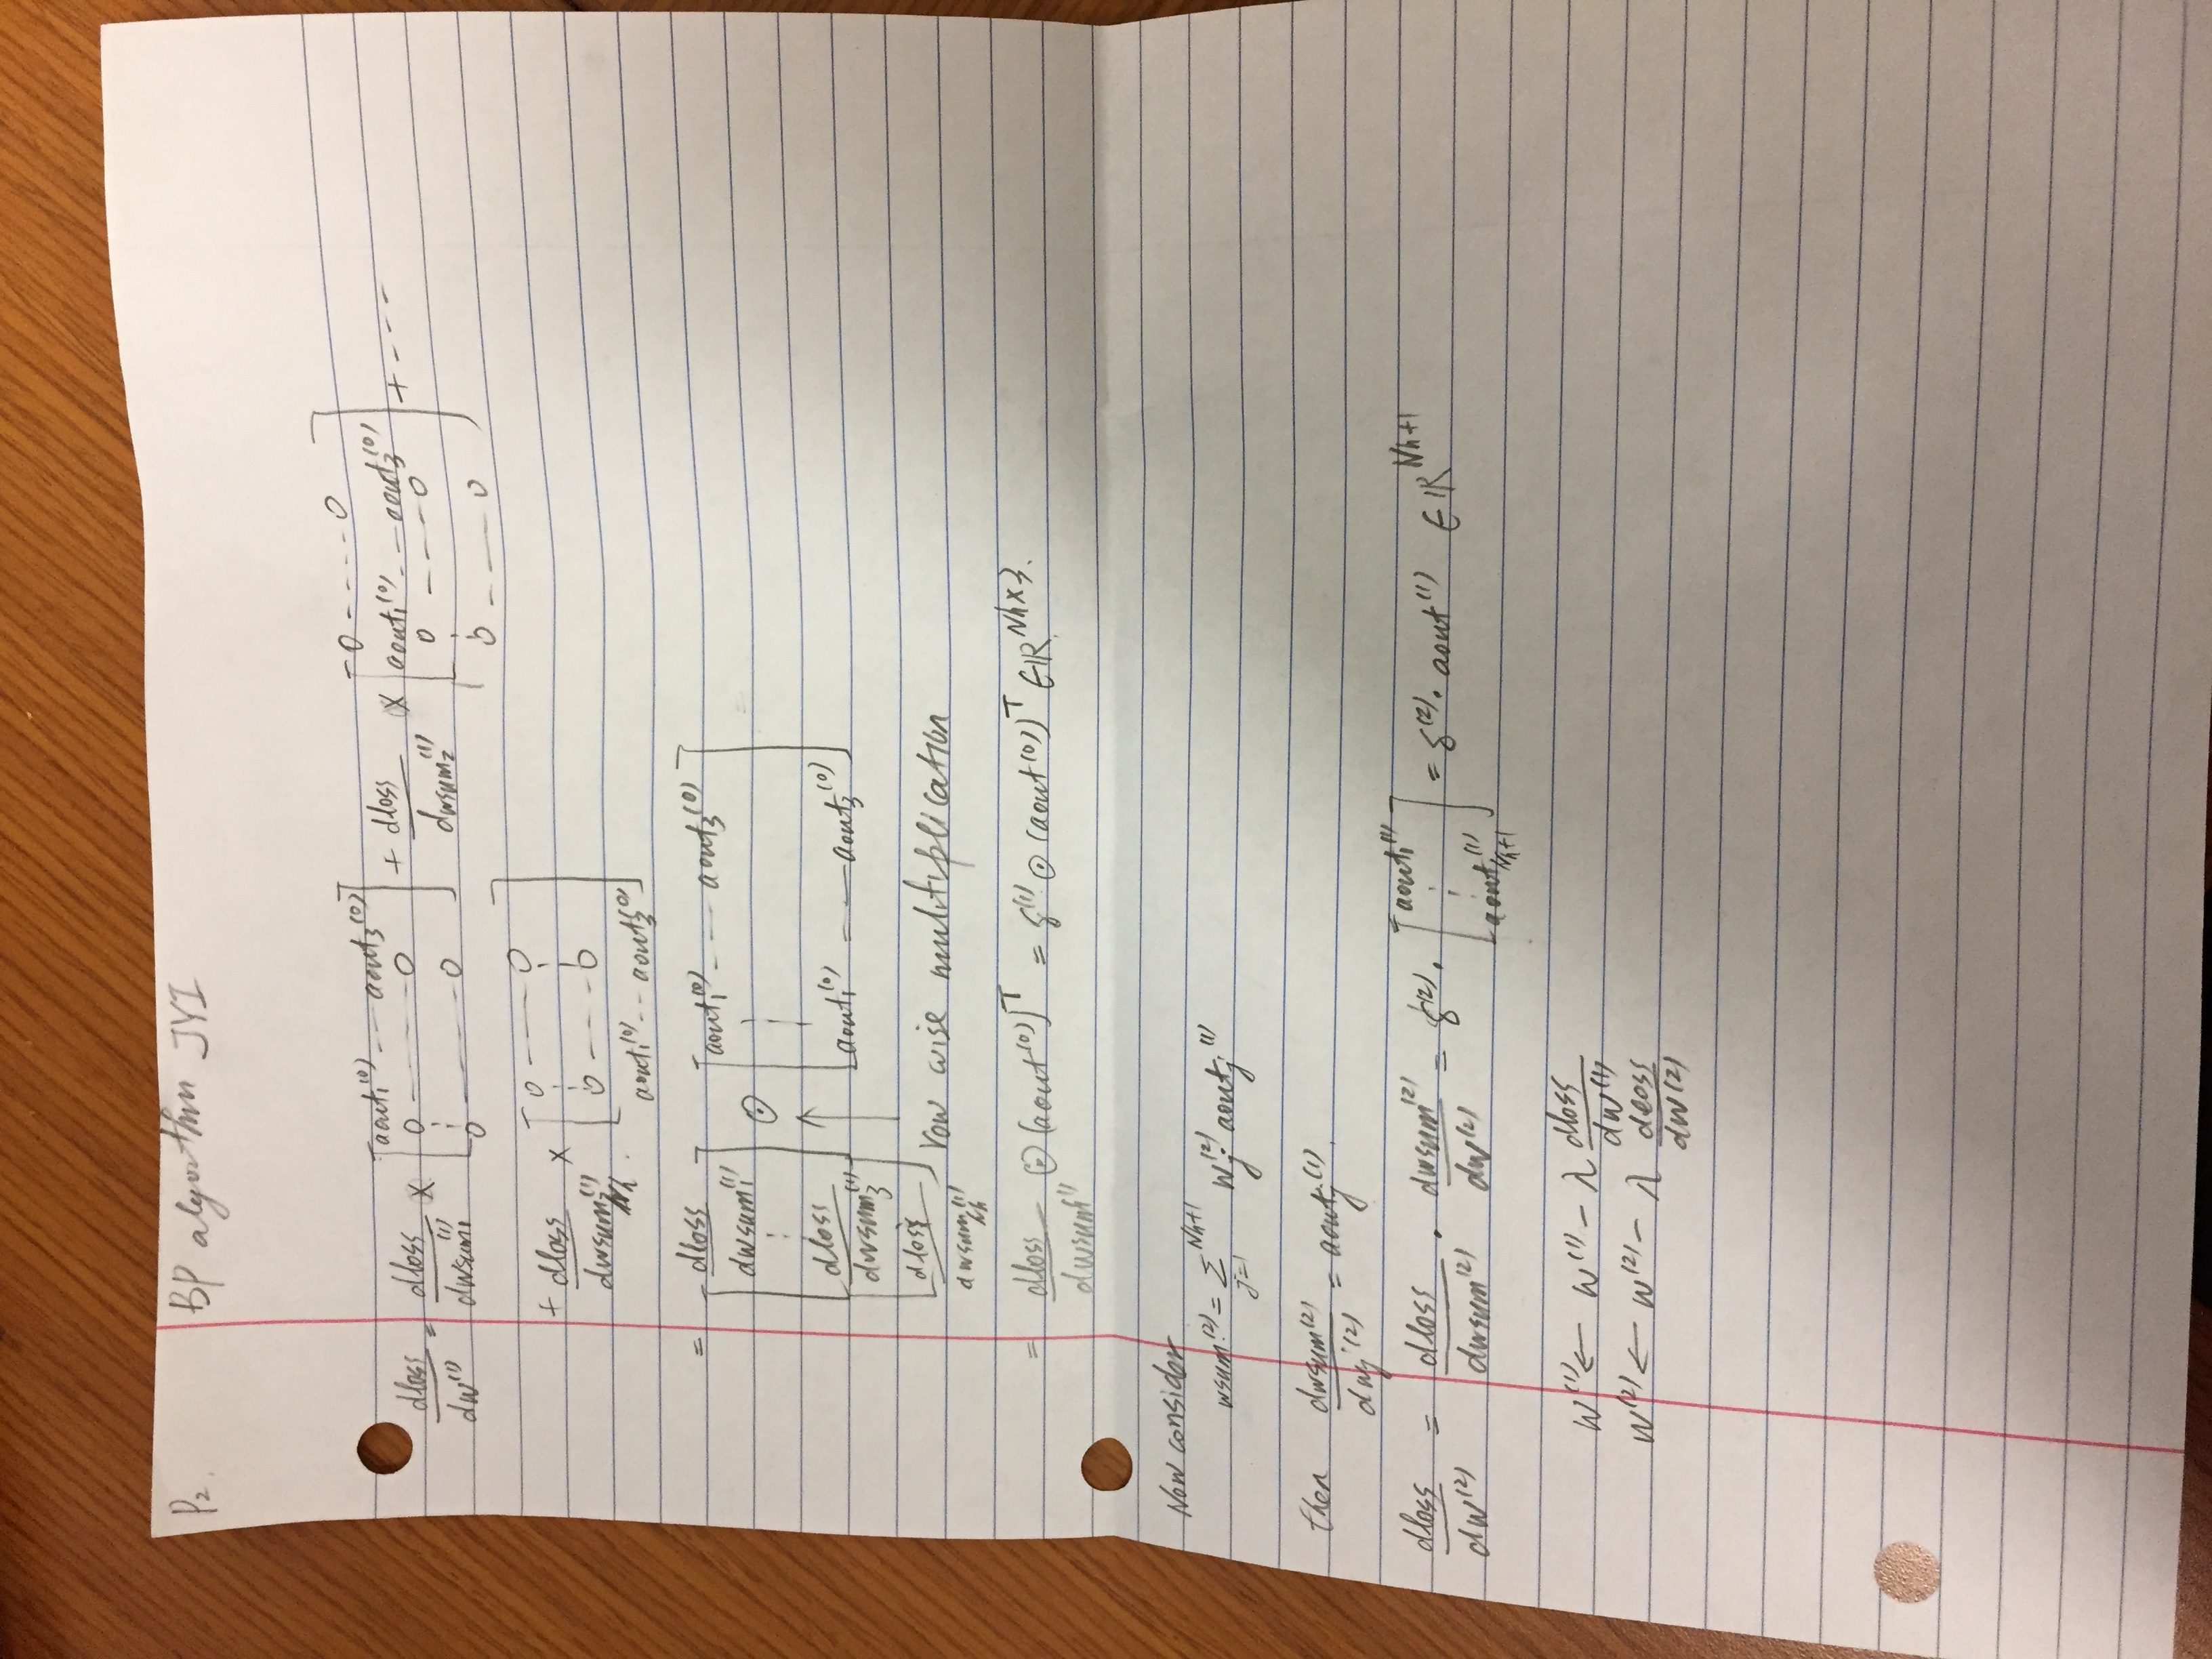 P2. BP algorithm JYI
dloss/dw^(1) = dloss/dwsum_1^(1) × [aout_1^(0) --- aout_3^(0); 0 --- 0; ⋮; 0 --- 0] + dloss/dwsum_2^(1) × [0 ---- 0; aout_1^(0) --- aout_3^(0); 0 --- 0; ⋮; 0 --- 0] + ----
+ dloss/dwsum_Nh^(1) × [0 --- 0; ⋮ ⋮; 0 --- 0; aout_1^(0) -- aout_3^(0)]
= [dloss/dwsum_1^(1); ⋮; dloss/dwsum_3^(1); dloss/dwsum_Nh^(1)] ⊙ [aout_1^(0) --- aout_3^(0); ⋮; aout_1^(0) --- aout_3^(0)]
↑ row wise multiplication
= dloss/dwsum^(1) ⊙ (aout^(0))^T = δ^(1) ⊙ (aout^(0))^T ∈ ℝ^{Nh×3}.
Now consider
wsum^(2) = Σ_{j=1}^{Nh+1} w_j^(2) aout_j^(1)
then dwsum^(2)/dw_j^(2) = aout_j^(1).
dloss/dw^(2) = dloss/dwsum^(2) · dwsum^(2)/dw^(2) = δ^(2) · [aout_1^(1); ⋮; aout_{Nh+1}^(1)] = δ^(2) · aout^(1) ∈ ℝ^{Nh+1}
w^(1) ← w^(1) − λ dloss/dw^(1)
w^(2) ← w^(2) − λ dloss/dw^(2)